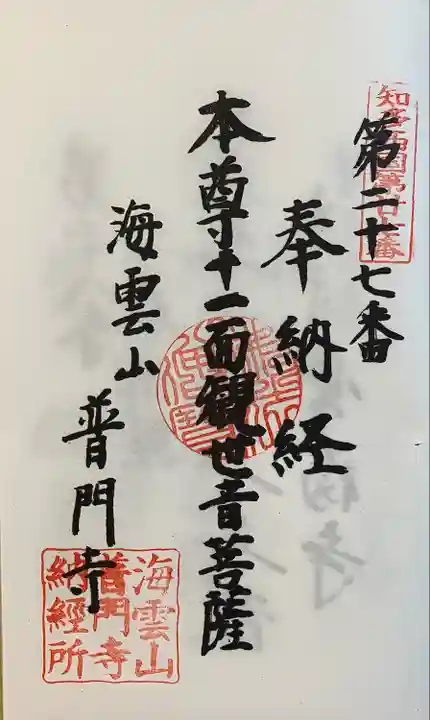 知多西国第廿七番
第二十七番
奉納経
本尊十一面観世音菩薩
海雲山
普門寺
海雲山
普門寺
納經所